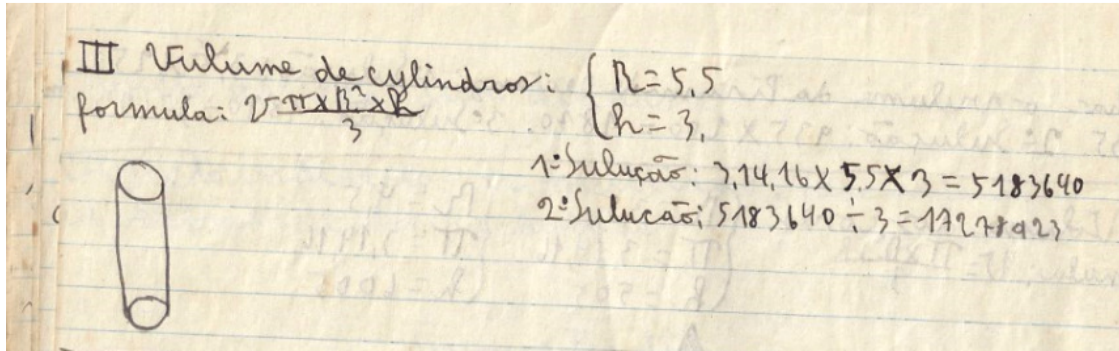 III Vulume de cylindros: { R = 5,5
formula: V = π x R² x h / 3 h = 3,
1ª Sulução: 3,14,16 X 5,5 X 3 = 5183640
2ª Sulucão: 5183640 ÷ 3 = 17278923